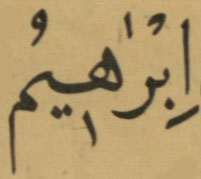 إِبْرٰهِيمُ